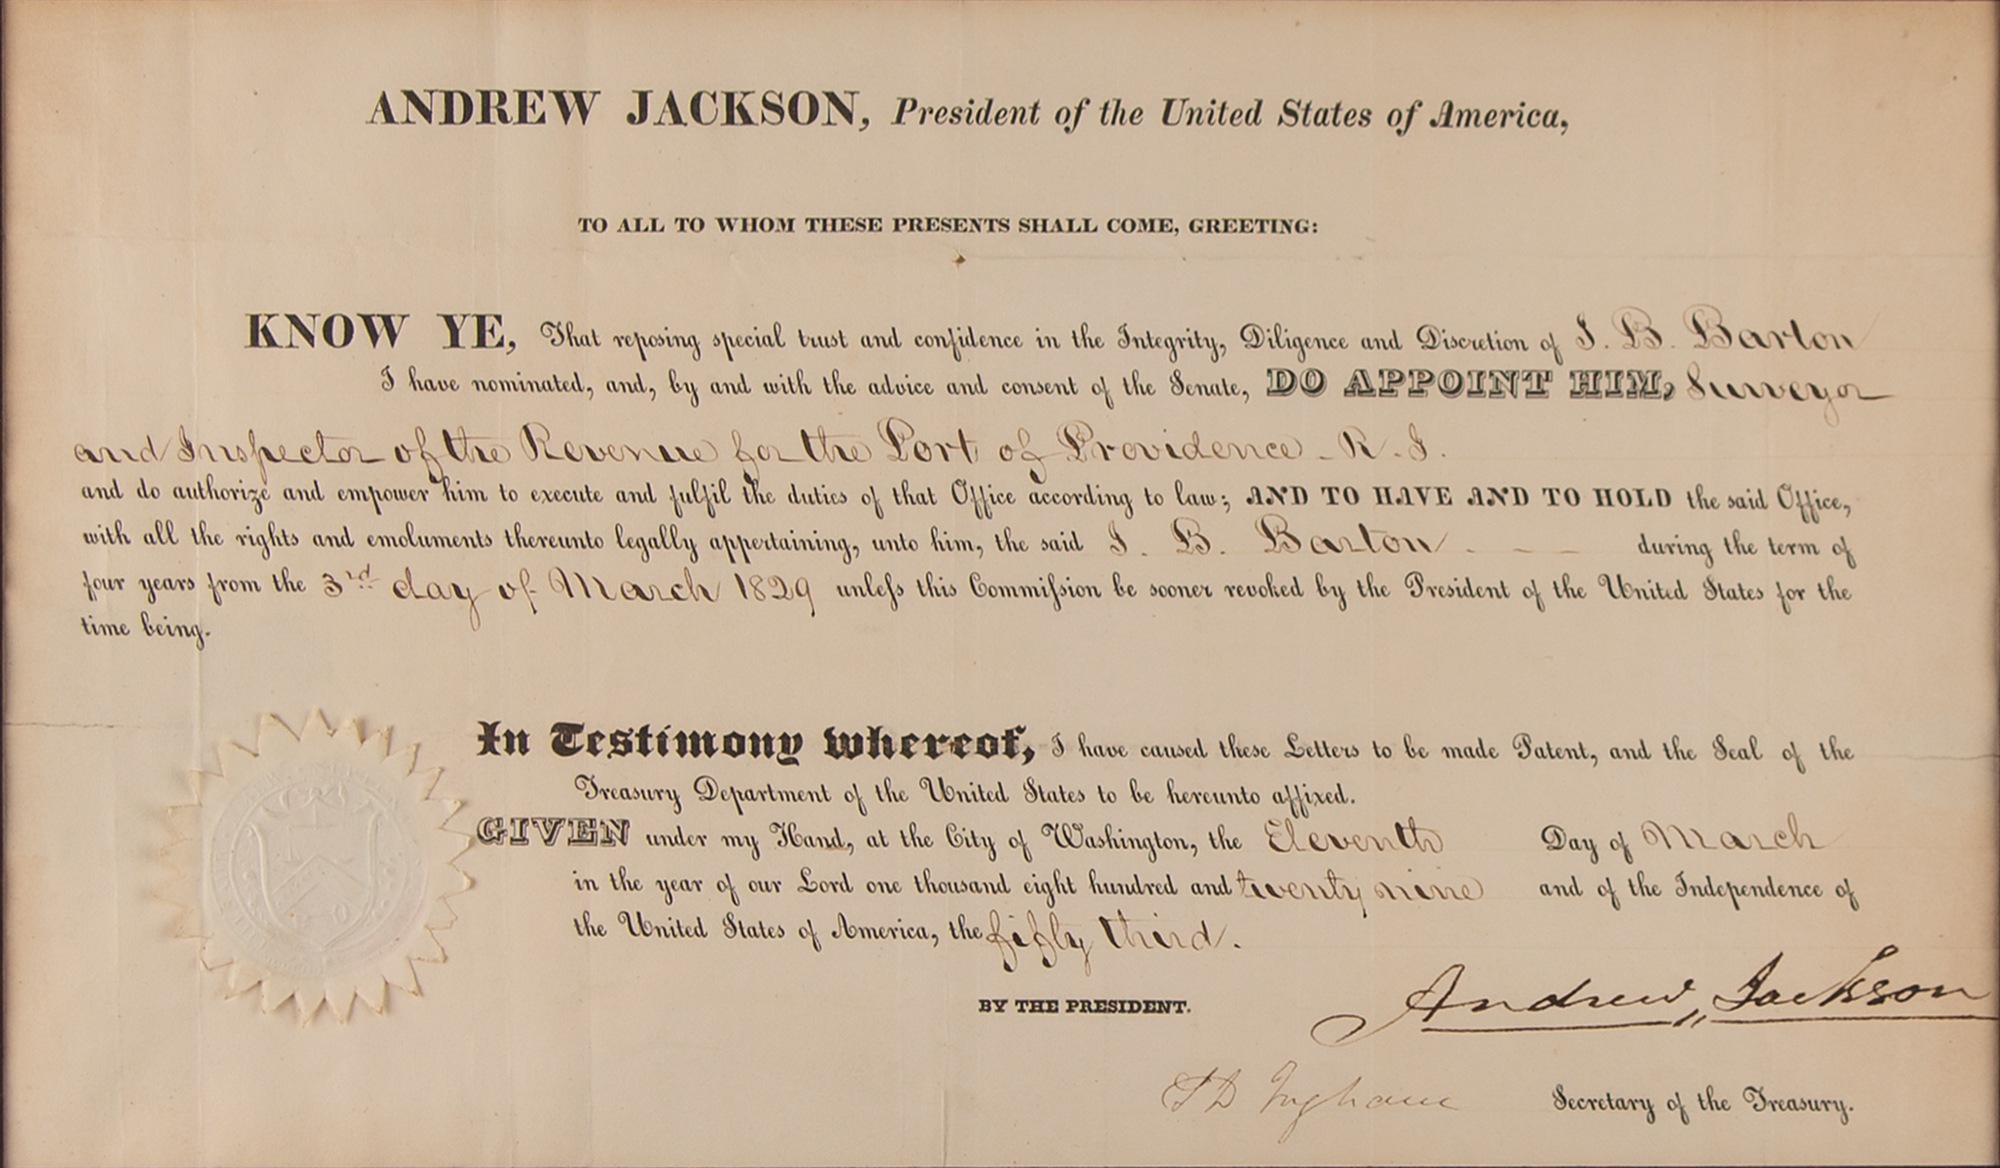 ANDREW JACKSON, President of the United States of America,
TO ALL TO WHOM THESE PRESENTS SHALL COME, GREETING:
KNOW YE, That reposing special trust and confidence in the Integrity, Diligence and Discretion of J. B. Barton
I have nominated, and, by and with the advice and consent of the Senate, DO APPOINT HIM, Surveyor
and Inspector of the Revenue for the Port of Providence - R. I.
and do authorize and empower him to execute and fulfil the duties of that Office according to law; AND TO HAVE AND TO HOLD the said Office,
with all the rights and emoluments thereunto legally appertaining, unto him, the said J. B. Barton - - - during the term of
four years from the 3rd day of March 1829 unleſs this Commiſsion be sooner revoked by the President of the United States for the
time being.
In Testimony whereof, I have caused these Letters to be made Patent, and the Seal of the
Treasury Department of the United States to be hereunto affixed.
GIVEN under my Hand, at the City of Washington, the Eleventh Day of March
in the year of our Lord one thousand eight hundred and twenty nine and of the Independence of
the United States of America, the fifty third.
BY THE PRESIDENT. Andrew Jackson
S D Ingham Secretary of the Treasury.